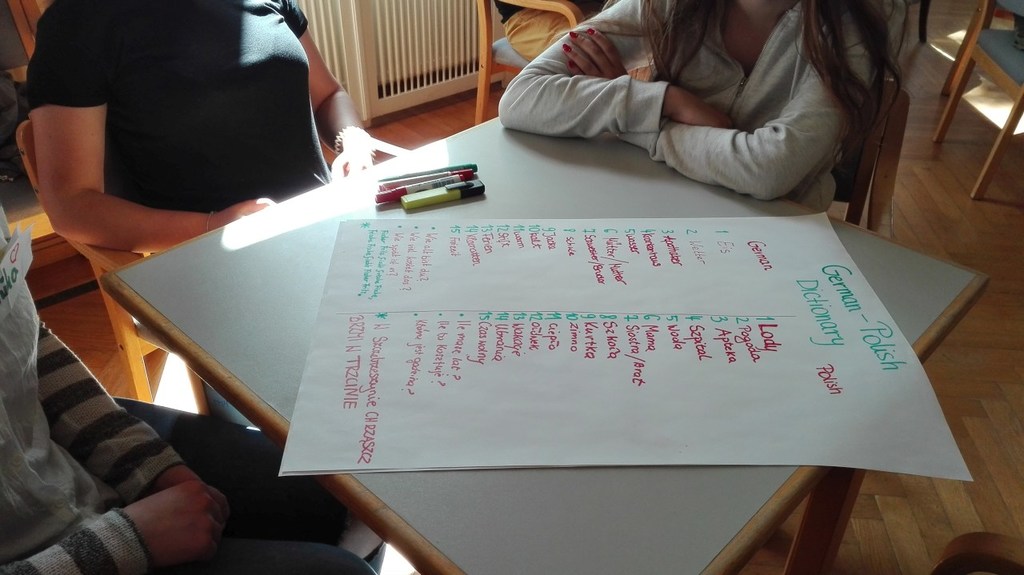 German - Polish
Dictionary
German
1 Eis
2 Wetter
3
4
5 Wasser
6 Mutter/
7 Schwester/Bruder
8 Schule
9 Jacke
10 kalt
11 warm
12
13 Ferien
14
15
• Wie alt bist du?
• Wie viel kostet das?
• Wie spät ist es?
Polish
1 Lody
2 Pogoda
3 Apteka
4 Szpital
5 Woda
6 Mama
7 Siostra/Brat
8 Szkoła
9 Kurtka
10 Zimno
11 ciepło
12
13 Wakacje
14 Ubrania
15 Czerwony
• Ile masz lat?
• Ile to kosztuje?
• jest godzina?
* W Szczebrzeszynie CHRZĄSZCZ
BRZMI W TRZCINIE